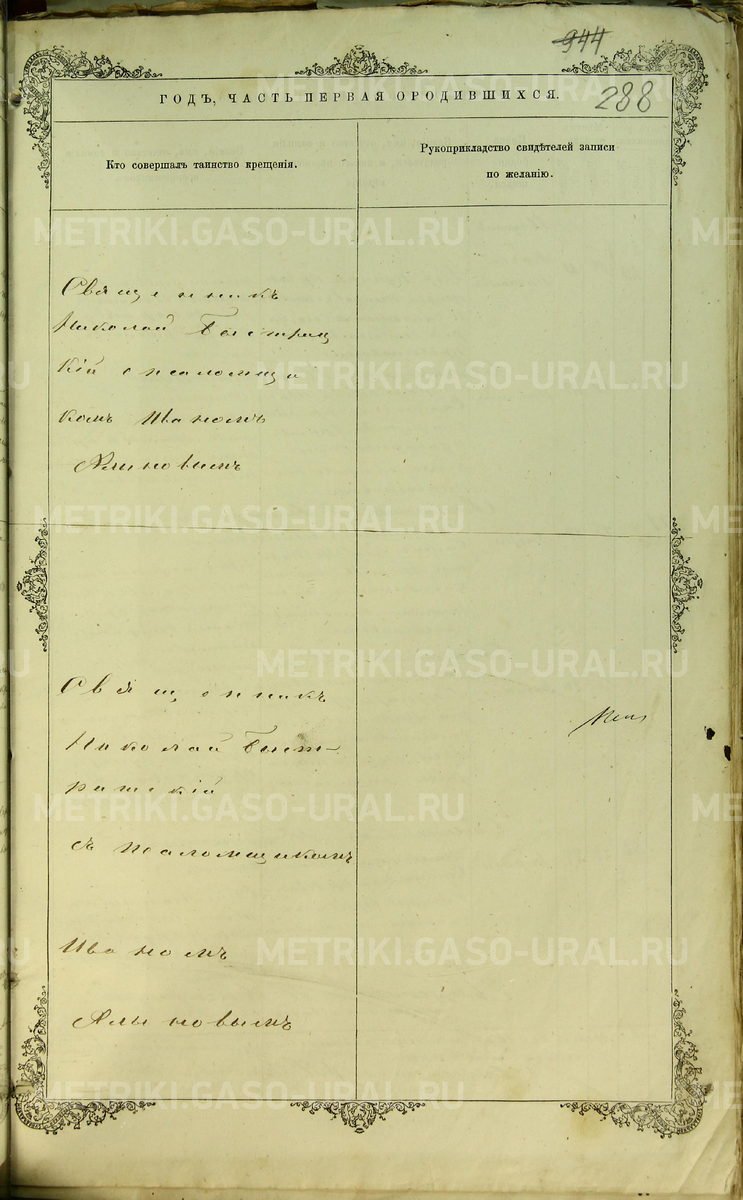 944
288
ГОДЪ, ЧАСТЬ ПЕРВАЯ О РОДИВШИХСЯ.
Кто совершалъ таинство крещенія.
Рукоприкладство свидѣтелей записи
по желанію.
Священникъ
Николай Быстриц
кій с псаломщи
комъ Иваномъ
Священникъ
Николай Быст-
рицкій
съ псаломщикомъ
Иваномъ
METRIKI.GASO-URAL.RU